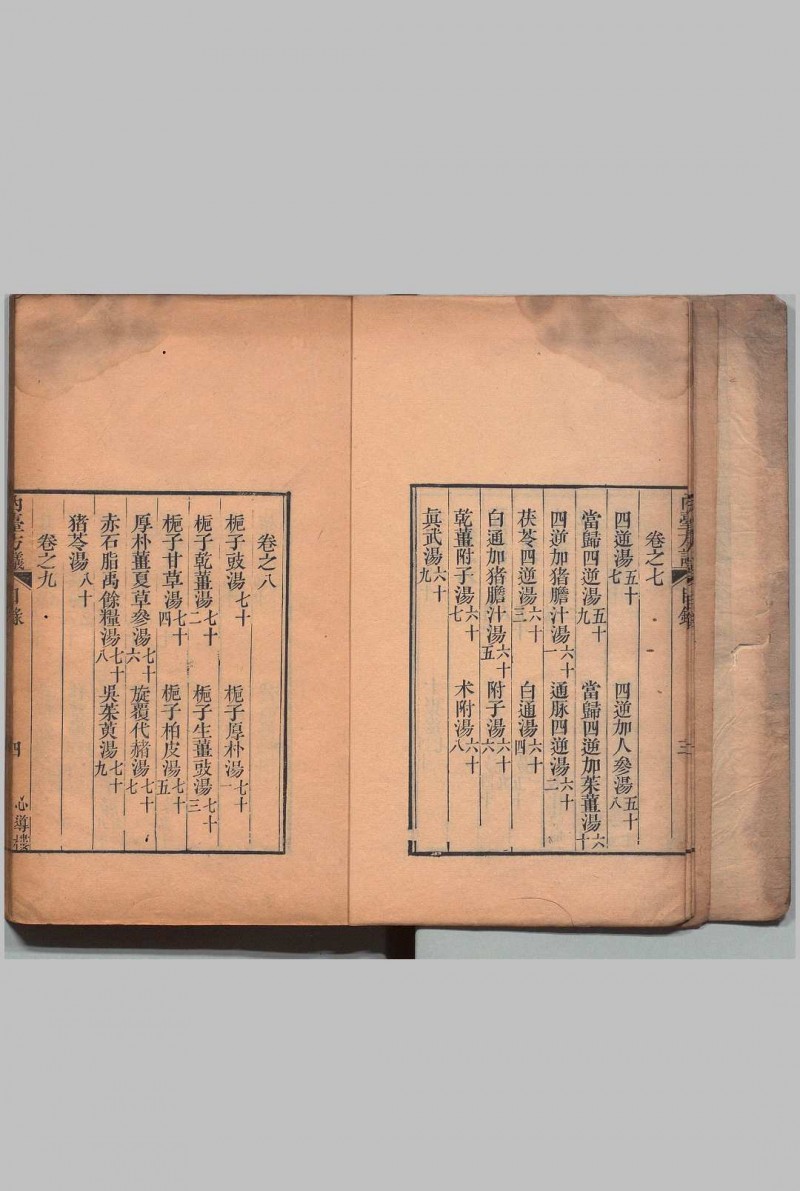 卷之七
四逆湯五十七 四逆加人參湯五十八
當歸四逆湯五十九 當歸四逆加茱薑湯六十
四逆加猪膽汁湯六十一 通脉四逆湯六十二
茯苓四逆湯六十三 白通湯六十四
白通加猪膽汁湯六十五 附子湯六十六
乾薑附子湯六十七 术附湯六十八
眞武湯六十九
卷之八
梔子豉湯七十 梔子厚朴湯七十一
梔子乾薑湯七十二 梔子生薑豉湯七十三
梔子甘草湯七十四 梔子柏皮湯七十五
厚朴薑夏草參湯七十六 旋覆代赭湯七十七
赤石脂禹餘糧湯七十八 吳茱萸湯七十九
猪苓湯八十
卷之九
內臺方議 目錄 四 心導樓